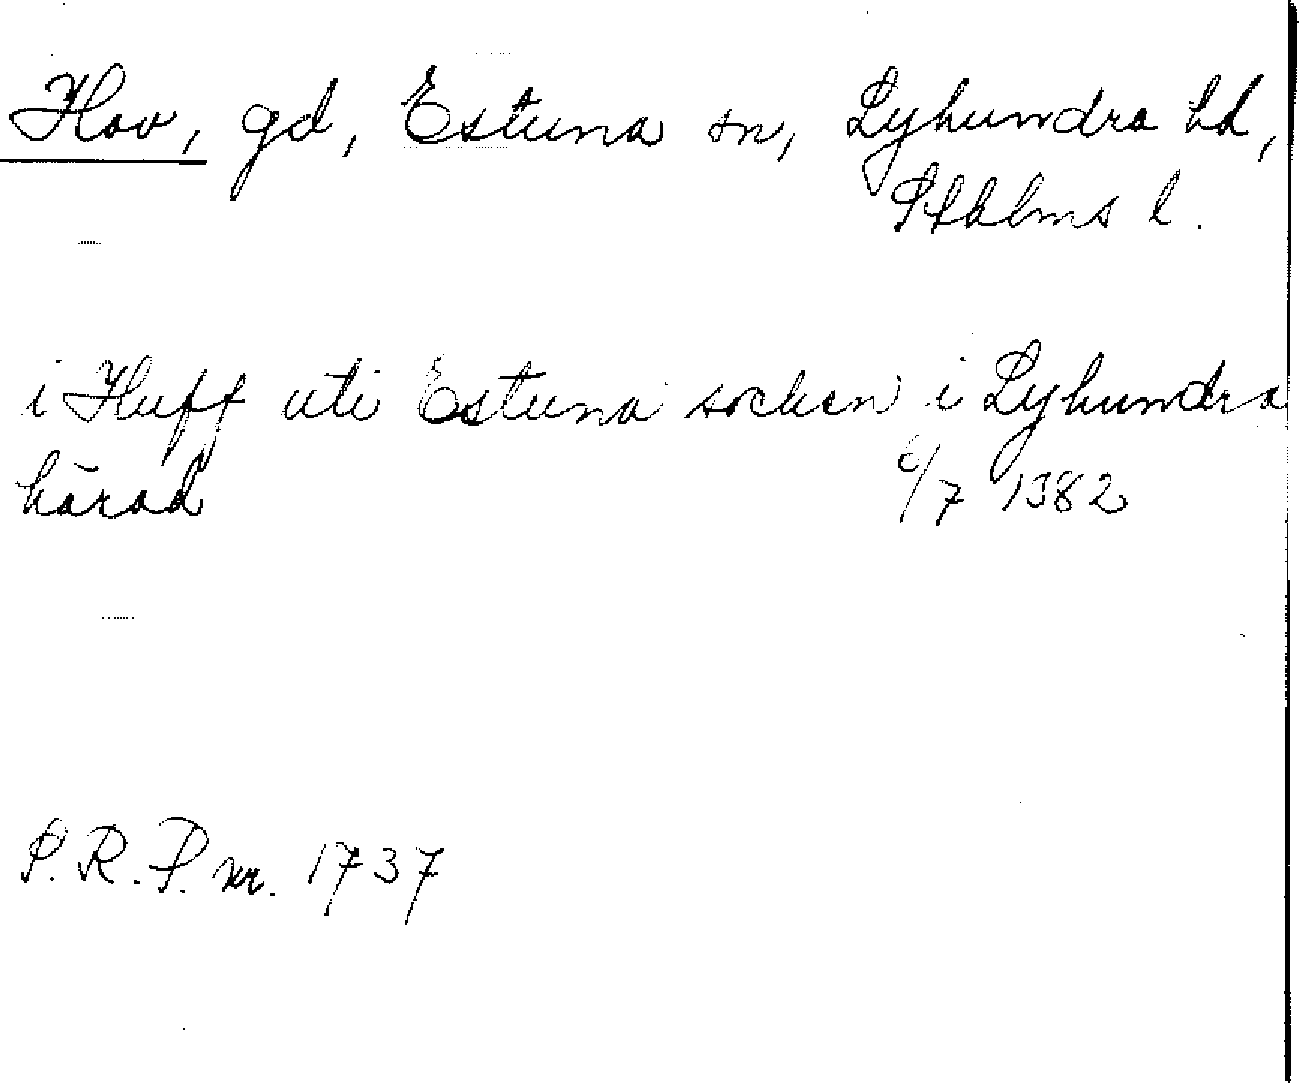 Hov, gd, Estuna sn, Lyhundra hd,
Sthlms l.
i Huff uti Estuna socken i Lyhundra
härad 6/7 1382
S.R.P. nr. 1737